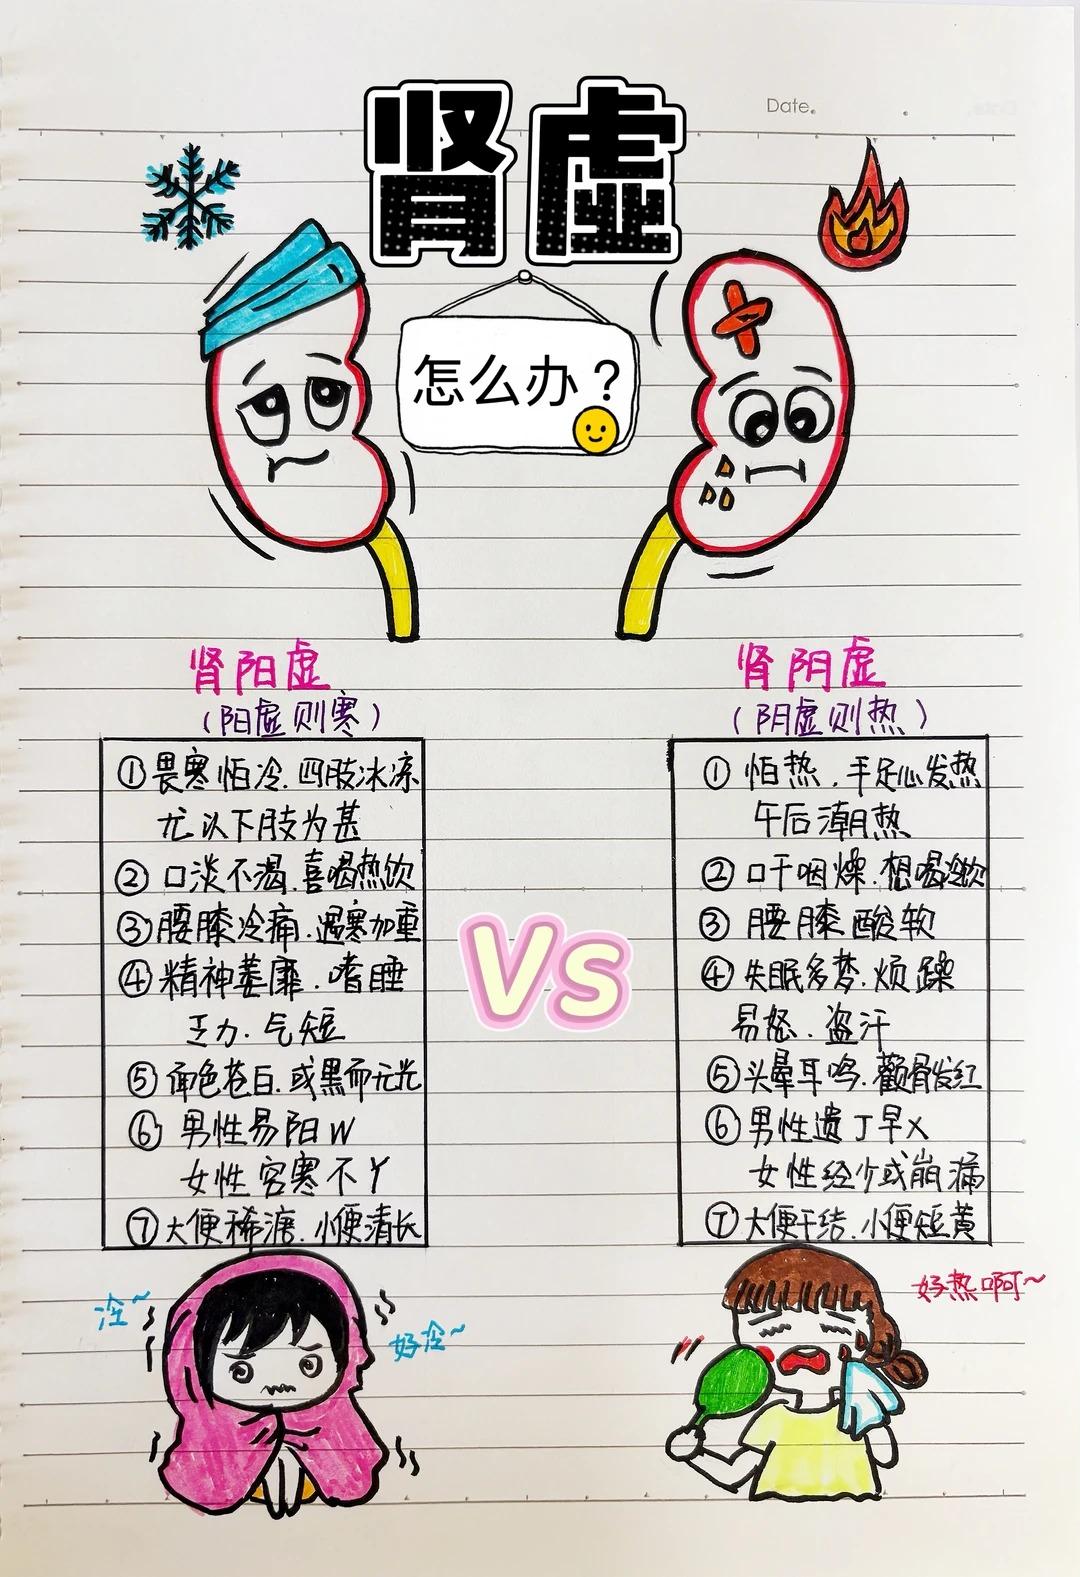 Date.
肾虚
怎么办？
肾阳虚
（阳虚则寒）
①畏寒怕冷.四肢冰凉
尤以下肢为甚
②口淡不渴.喜喝热饮
③腰膝冷痛.遇寒加重
④精神萎靡.嗜睡
乏力.气短
⑤面色苍白.或黑而无光
⑥男性易阳W
女性宫寒不丫
⑦大便稀溏.小便清长
Vs
肾阴虚
（阴虚则热）
①怕热.手足心发热
午后潮热
②口干咽燥.想喝冷饮
③腰膝酸软
④失眠多梦.烦躁
易怒.盗汗
⑤头晕耳鸣.颧骨发红
⑥男性遗J早X
女性经少或崩漏
⑦大便干结.小便短黄
冷~
好冷~
好热啊~